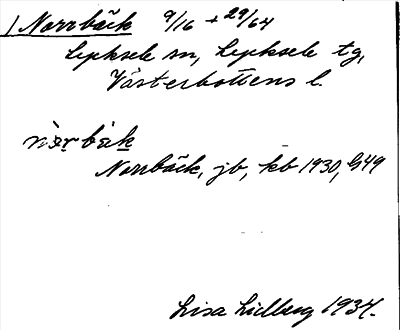 Norrbäck 9/16 + 29/64
Lycksele sn, Lycksele tg,
Västerbottens l.
nòr̥bàk
Norrbäck, jb, kb 1930, G49
Lisa Lidberg 1934.